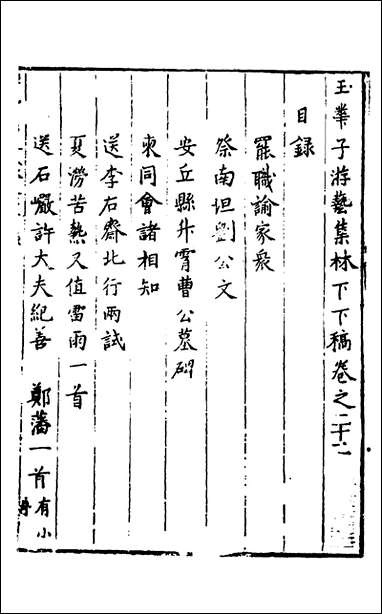 玉華子游藝集林下下稿卷之二十二
目錄
罷職諭家衆
祭南坦劉公文
安丘縣升霄曹公墓碑
柬同會諸相知
送李右齋北行兩試
夏澇苦熱又值雷雨一首
送石巖許大夫紀善鄭藩一首有小序